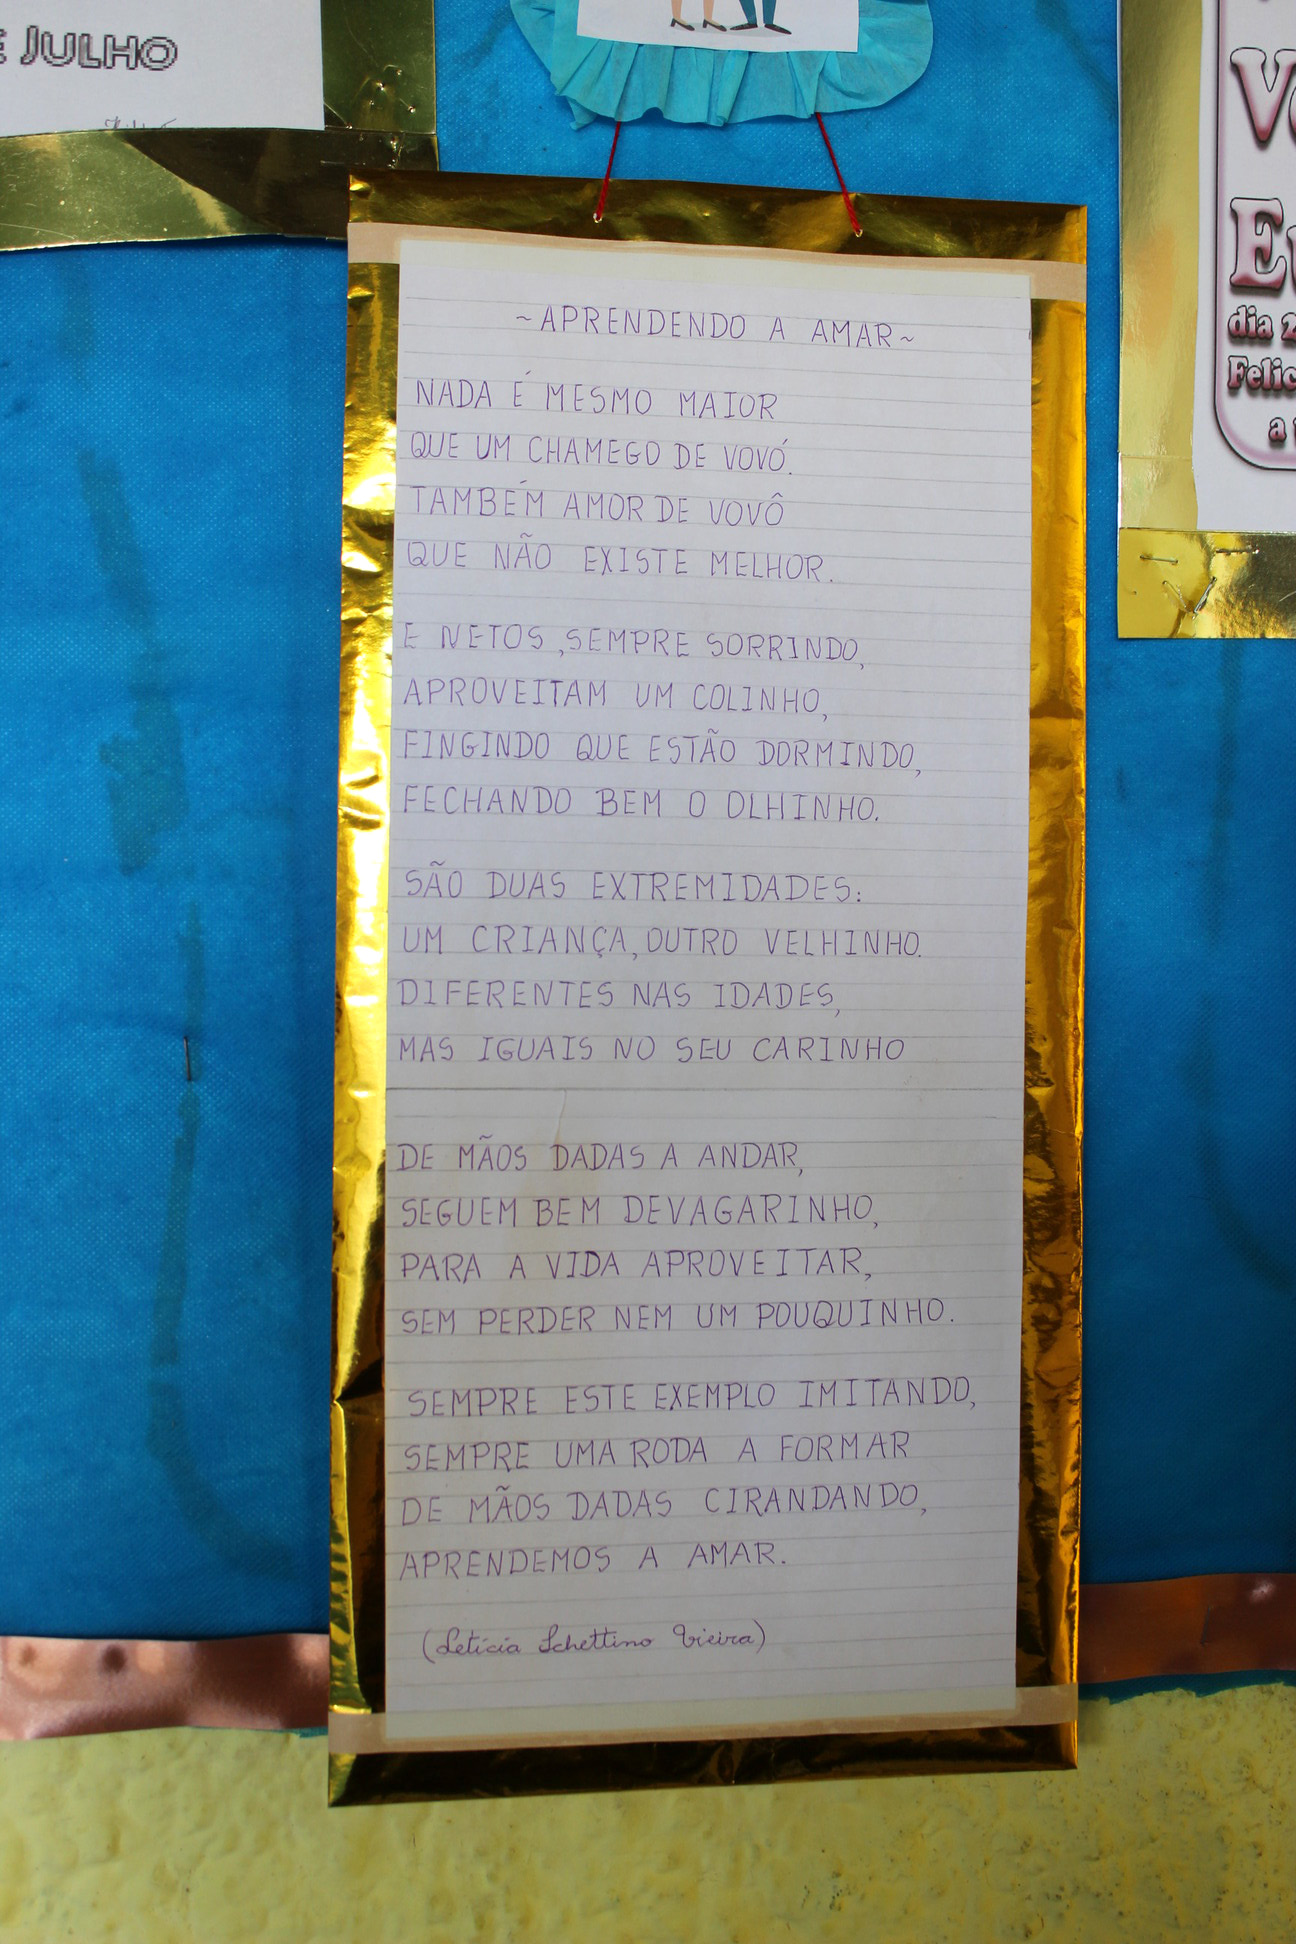 E JULHO
~APRENDENDO A AMAR~
NADA É MESMO MAIOR
QUE UM CHAMEGO DE VOVÓ.
TAMBÉM AMOR DE VOVÔ
QUE NÃO EXISTE MELHOR.
E NETOS, SEMPRE SORRINDO,
APROVEITAM UM COLINHO,
FINGINDO QUE ESTÃO DORMINDO,
FECHANDO BEM O OLHINHO.
SÃO DUAS EXTREMIDADES:
UM CRIANÇA, OUTRO VELHINHO.
DIFERENTES NAS IDADES,
MAS IGUAIS NO SEU CARINHO
DE MÃOS DADAS A ANDAR,
SEGUEM BEM DEVAGARINHO,
PARA A VIDA APROVEITAR,
SEM PERDER NEM UM POUQUINHO.
SEMPRE ESTE EXEMPLO IMITANDO,
SEMPRE UMA RODA A FORMAR
DE MÃOS DADAS CIRANDANDO,
APRENDEMOS A AMAR.
(Letícia Schettino Vieira)
dia 2
Felic
a